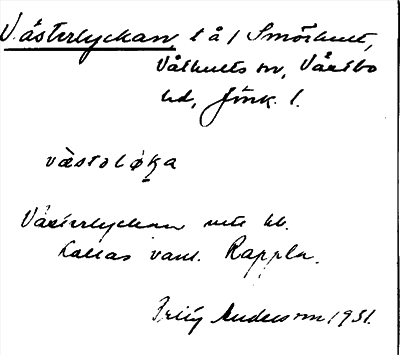 Västerlyckan l å / Smörhult,
Våthults sn, Västbo
hd, Jönk. l.
västəlø̣ka
Västerlyckan
kallas vanl. Rappla.
Fritz Anderson 1931.